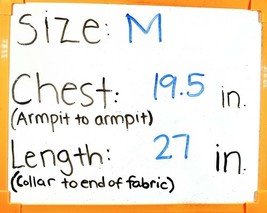 Size: M
Chest: 19.5 in.
(Armpit to armpit)
Length: 27 in.
(Collar to end of fabric)